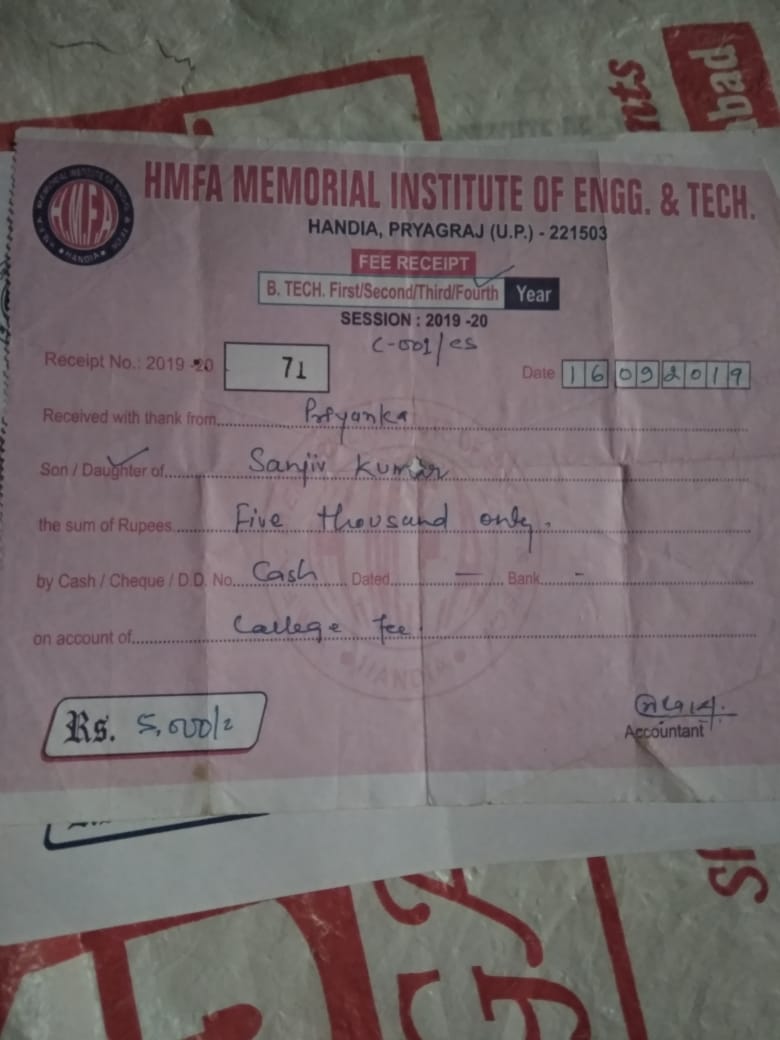 HMFA MEMORIAL INSTITUTE OF ENGG. & TECH.
HMFA
HANDIA
HANDIA, PRYAGRAJ (U.P.) - 221503
FEE RECEIPT
B. TECH. First/Second/Third/Fourth Year
SESSION : 2019 -20
C-001/CS
Receipt No.: 2019 -20 71
Date 16092019
Received with thank from Priyanka
Son / Daughter of Sanjiv Kumar
the sum of Rupees Five thousand only.
by Cash / Cheque / D.D. No. Cash Dated — Bank -
on account of College Fee.
HANDIA
Rs. 5,000/=
Accountant
nts
bad